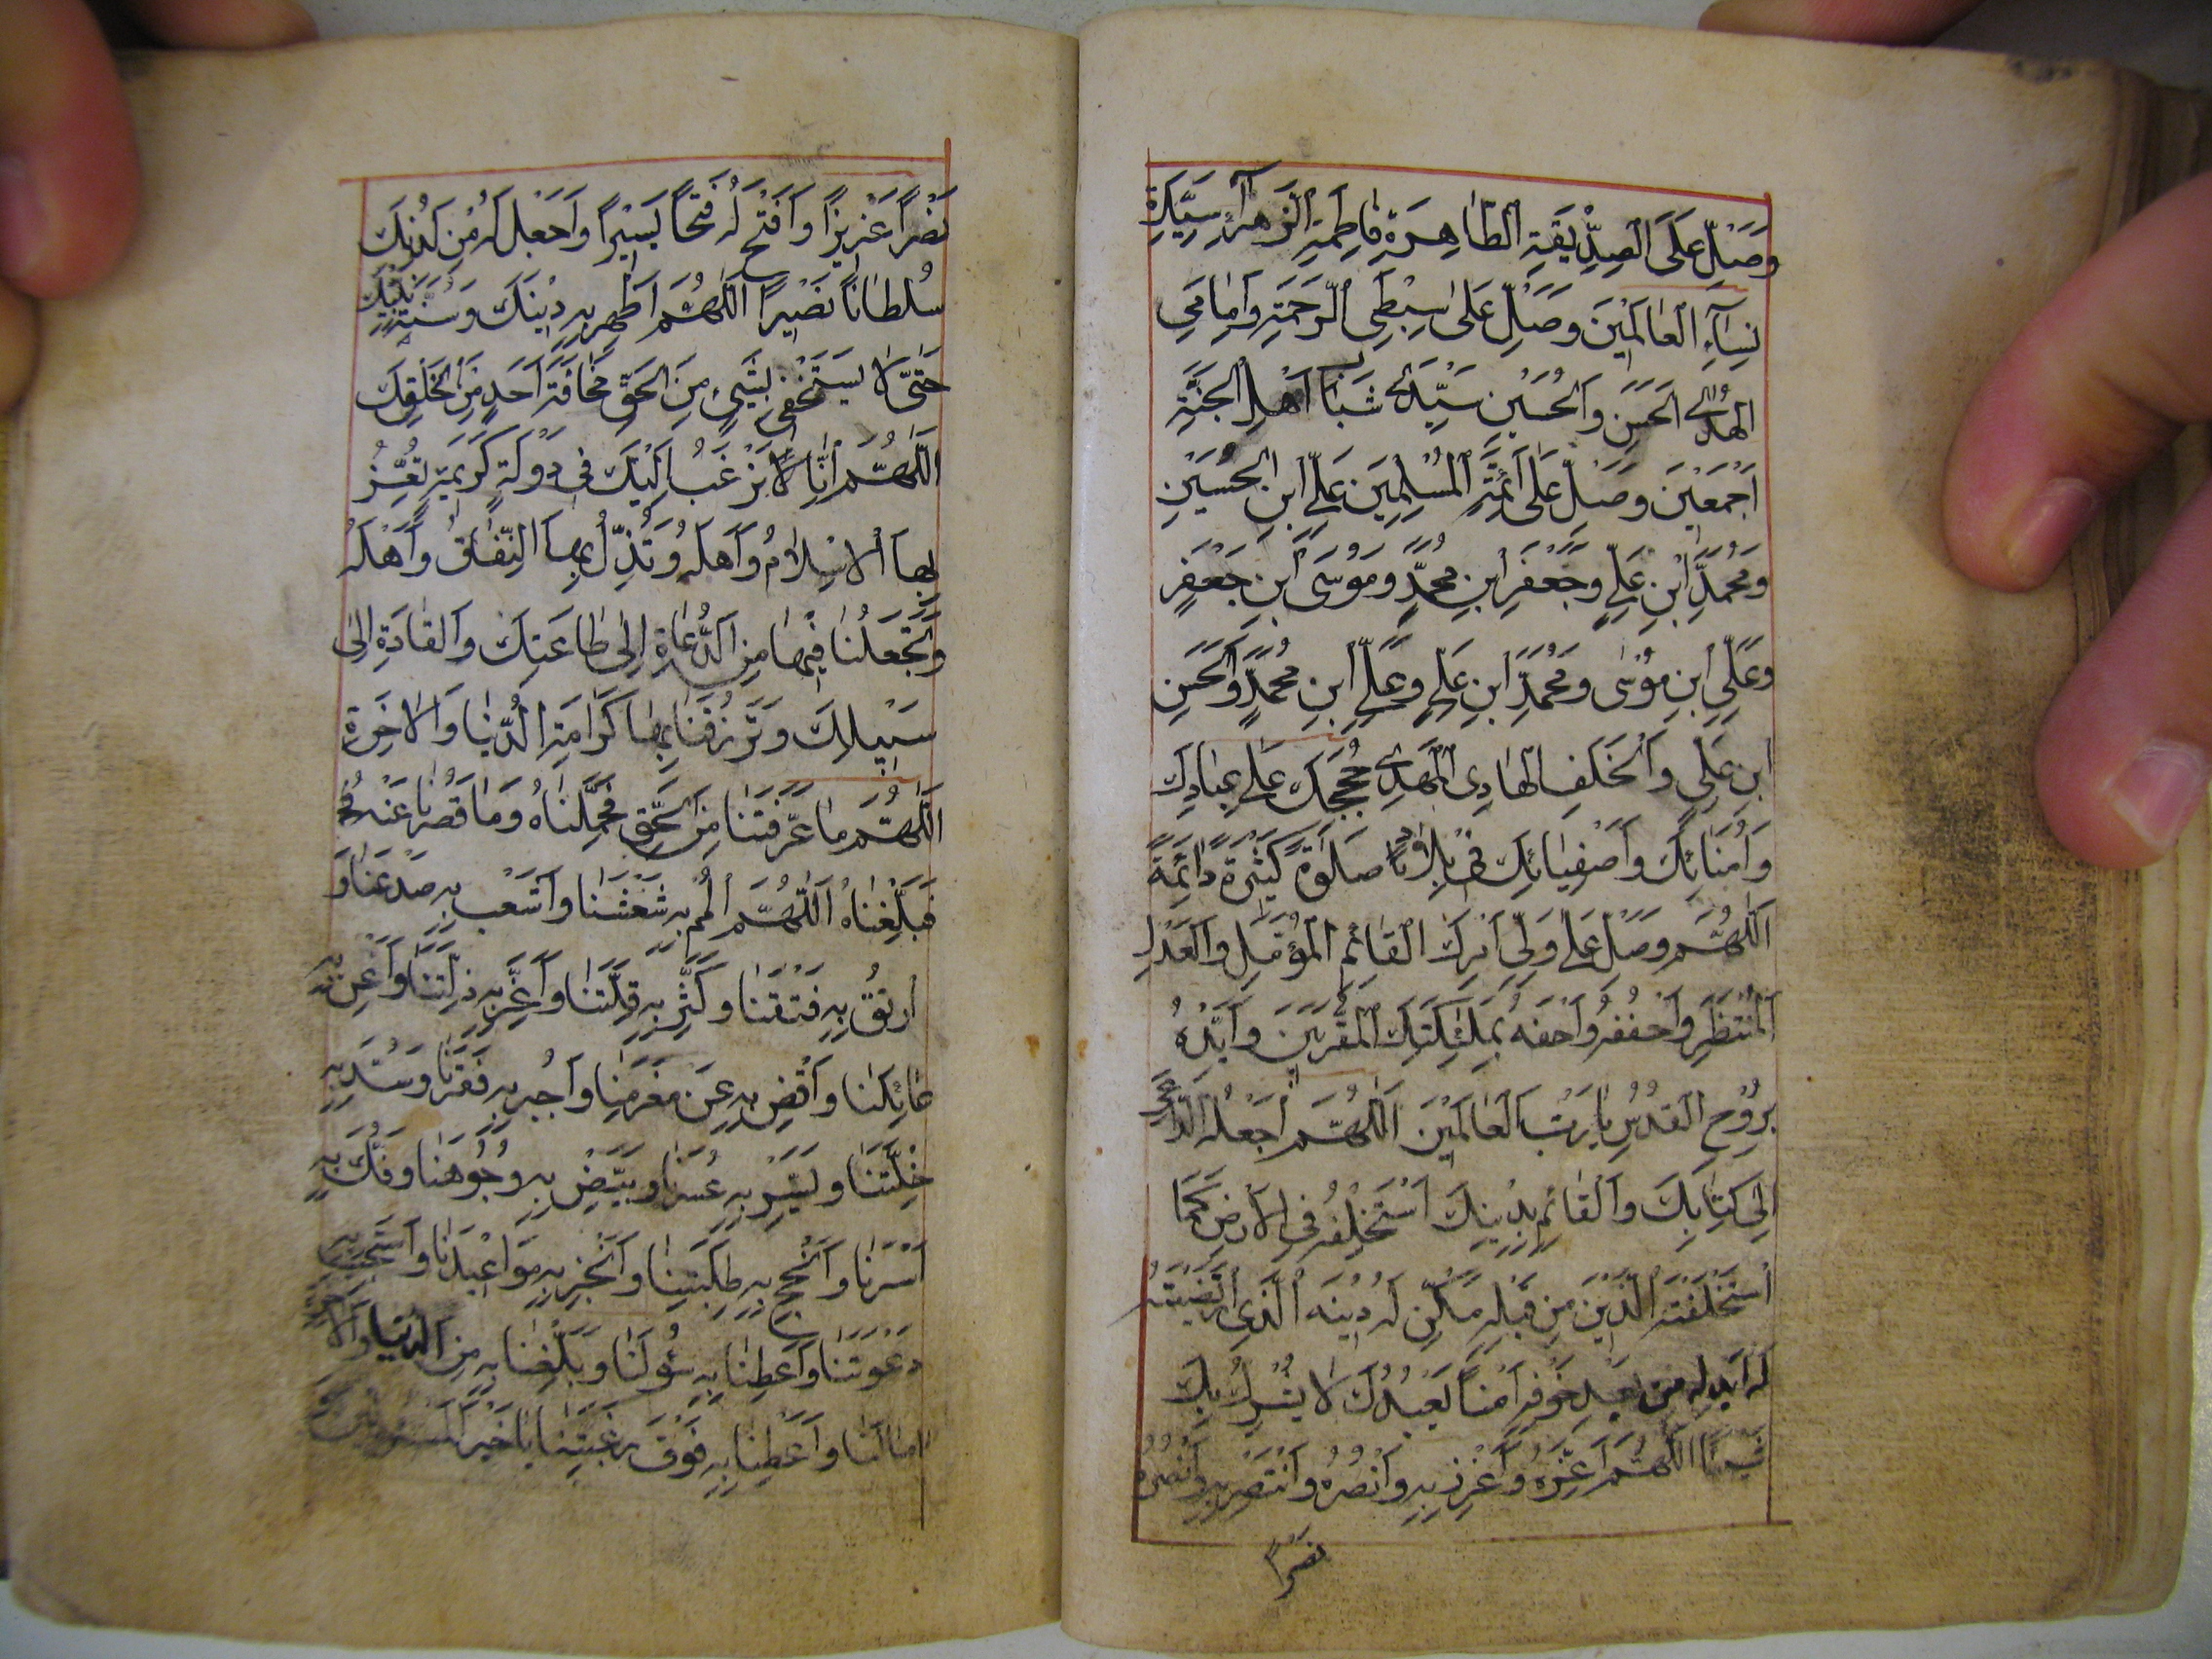 وَصَلِّ عَلَى الصِّدِّيقَةِ الطَّاهِرَةِ فَاطِمَةِ الزَّهرآءِ سَيِّدَةِ
نِسَآءِ العَالَمِينَ وَصَلِّ عَلىٰ سِبْطَيِ الرَّحْمَةِ وَاِمَامَيِ
الهُدىٰ الحَسَنِ وَالحُسَيْنِ سَيِّدَىْ شَبَابِ اَهْلِ الجَنَّةِ
اَجْمَعِينَ وَصَلِّ عَلىٰ اَئِمَّةِ المُسْلِمِينَ عَلِيِّ ابنِ الحُسَيْنِ
وَمُحمَّدِ ابْنِ عَلِيٍّ وَجَعْفَرِ ابنِ مُحمَّدٍ وَمُوسَى ابنِ جَعْفَرٍ
وَعَلِيِّ ابنِ مُوْسٰى وَمُحَمَّدِ ابنِ عَلِيٍّ وَعَلِيِّ ابنِ مُحَمَّدٍ وَالحَسَنِ
ابنِ عَلِيٍّ وَالخَلَفِ الهَادِى المَهْدِىْ حُجَجِكَ عَلىٰ عِبَادِكَ
وَاُمَنَائِكَ وَاَصْفِيَائِكَ فى بِلَادِكَ صَلوٰةً كَثِيرَةً دَائِمَةً
اَللّٰهُمَّ وَصَلِّ عَلىٰ وَلِىِّ اَمْرِكَ القَائِمِ المُؤَمَّلِ وَالعَدْلِ
المُنْتَظَرِ وَاحفُفْهُ وَاحْفَهُ بِمَلٰئِكَتِكَ المُقَرَّبِينَ وَاَيِّدْهُ
بِرُوْحِ القُدُسِ يَا رَبَّ العَالَمِيْنَ اَللّٰهُمَّ اجْعَلْهُ الدَّاعِىَ
اِلىٰ كِتَابِكَ وَالقَائِمَ بِدِيْنِكَ اسْتَخْلِفْهُ فِى الاَرْضِ كَمَا
اسْتَخْلَفْتَ الَّذِيْنَ مِنْ قَبْلِهِ مَكِّنْ لَهُ دِيْنَهُ الَّذِى ارْتَضَيْتَهُ
لَهُ اَبْدِلْهُ مِنْ بَعْدِ خَوْفِهِ اَمْناً يَعْبُدُكَ لَا يُشْرِكُ بِكَ
شَيْئًا اَللّٰهُمَّ اَعِزَّهُ وَاَعْزِزْ بِهِ وَانْصُرْهُ وَانْتَصِرْ بِهِ وَانْصُرْهُ
نَصْراً
نَصْراً عَزِيزًا وَافْتَحْ لَهُ فَتْحًا يَسِيْراً وَاجْعَلْ لَهُ مِنْ لَدُنْكَ
سُلْطَانًا نَصِيْراً اَللّٰهُمَّ اَظْهِرْ بِهِ دِيْنَكَ وَسُنَّةَ نَبِيِّكَ
حَتّىٰ لَا يَسْتَخْفِىَ بِشَيْءٍ مِنَ الحَقِّ مَخَافَةَ اَحَدٍ مِنَ الخَلْقِكَ
اَللّٰهُمَّ اِنَّا لَاَ نَرْغَبُ اِلَيْكَ فى دَوْلَةٍ كَرِيْمَةٍ تُعِزُّ
بِهَا الاِسْلَامَ وَاَهْلَهُ وَتُذِلُّ بِهَا النِّفَاقَ وَاَهْلَهُ
وَتَجْعَلُنَا فِيْهَا مِنَ الدُّعَاةِ اِلىٰ طَاعَتِكَ وَالقَادَةِ اِلىٰ
سَبِيْلِكَ وَتَرْزُقُنَا بِهَا كَرَامَةَ الدُّنْيَا وَالاٰخِرَةِ
اَللّٰهُمَّ مَا عَرَّفْتَنَا مِنَ الحَقِّ فَحَمِّلْنَاهُ وَمَا قَصُرْنَا عَنْهُ
فَبَلِّغْنَاهُ اَللّٰهُمَّ الْمُمْ بِهِ شَعَثَنَا وَاشْعَبْ بِهِ صَدْعَنَا وَ
ارْتُقْ بِهِ فَتْقَنَا وَكَثِّرْ بِهِ قِلَّتَنَا وَاَعِزَّ بِهِ ذِلَّتَنَا وَاَغْنِ بِهِ
عَائِلَنَا وَاقْضِ بِهِ عَنْ مَغْرَمِنَا وَاجْبُرْ بِهِ فَقْرَنَا وَسُدَّ بِهِ
خَلَّتَنَا وَيَسِّرْ بِهِ عُسْرَنَا وَبَيِّضْ بِهِ وُجُوْهَنَا وَفُكَّ بِهِ
اَسْرَنَا وَاَنْجِحْ بِهِ طَلِبَتَنَا وَاَنْجِزْ بِهِ مَوَاعِيْدَنَا وَاسْتَجِبْ بِهِ
دَعْوَتَنَا وَاَعْطِنَا بِهِ سُؤْلَنَا وَبَلِّغْنَا بِهِ مِنَ الدُّنْيَا وَالاٰ
اٰمَالَنَا وَاَعْطِنَا بِهِ فَوْقَ رَغْبَتِنَا يَا خَيْرَ